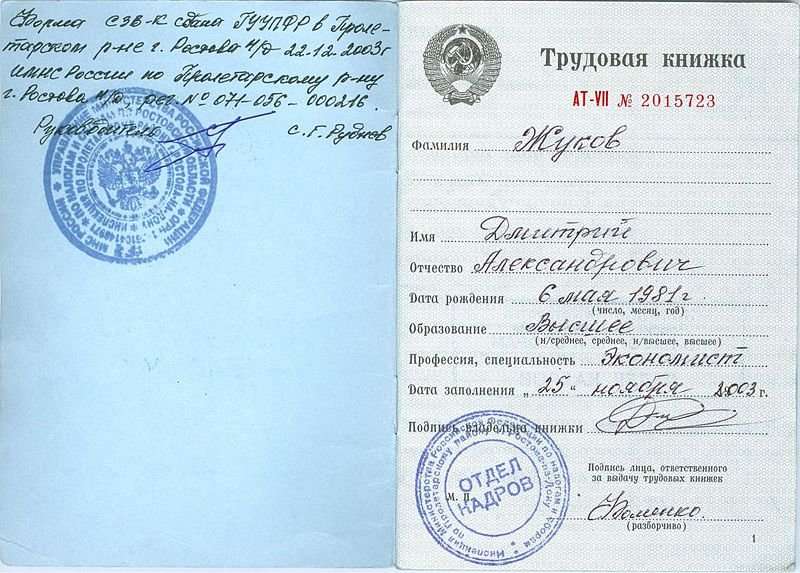 Форма СЗВ-К сдана ГУУПФР в Проле-
тарском р-не г. Ростова н/Д 22.12.2003г
ИМНС России по Пролетарскому р-ну
г. Ростова н/Д, рег. № 071-056-000216.
Руководитель С. Г. Руднев
Трудовая книжка
АТ-VII № 2015723
Фамилия Жуков
Имя Дмитрий
Отчество Александрович
Дата рождения 6 мая 1981г.
(число, месяц, год)
Образование Высшее
(н/среднее, среднее, н/высшее, высшее)
Профессия, специальность Экономист
Дата заполнения „25“ ноября 2003 г.
Подпись владельца книжки
ОТДЕЛ
КАДРОВ
М. П.
Подпись лица, ответственного
за выдачу трудовых книжек
Фоменко.
(разборчиво)
1